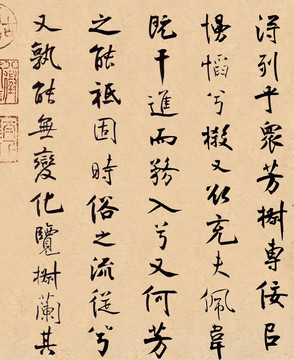 得列乎眾芳椒專佞㠯
慢慆兮樧又欲充夫佩韋
既干進而務入兮又何芳
之能祗固時俗之流從兮
又孰能無變化覽椒蘭其